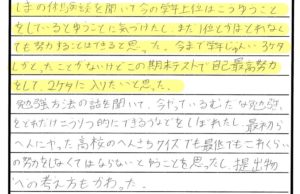 しまの体験談を聞いて今の学年上位はこうゆうこと
をしているとゆうことに気づけたし、また1位とかはとれなく
ても努力することはできると思った。今まで学年じゅんい3ケタ
しかとったことがないけどこの期末テストで自己最高努力
をして、2ケタに入りたいと思った。
勉強方法の話を聞いて、今だっているむだな勉強
をどれだけこうりつ的にできるかなどをしはれたし、最初ら
へんにやった高校のへんさちクイズでも最低でもこれくらい
の努力をしなくてはならないとゆうことを思ったし、提出物
への考え方もかわった。